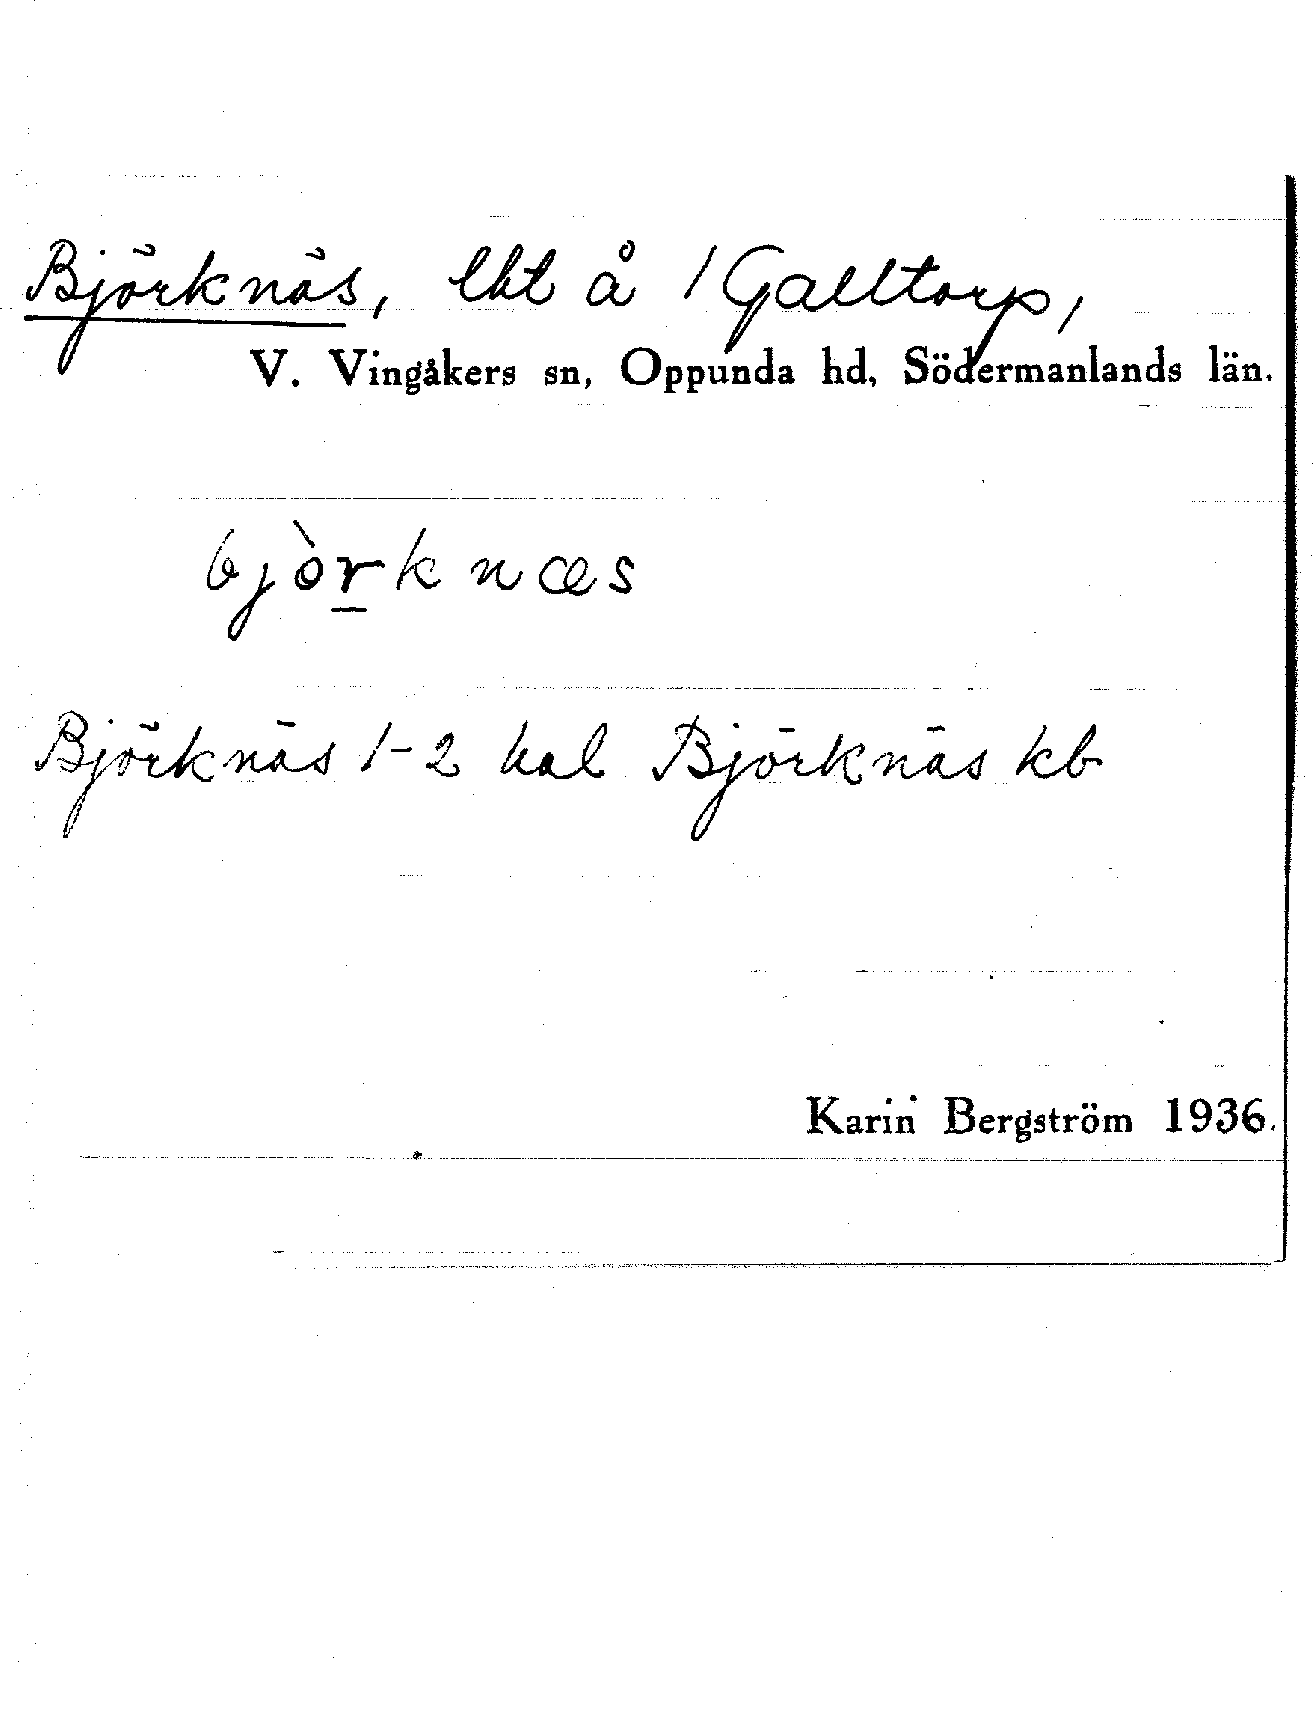 Björknäs, lht å 1 Galltorp,
V. Vingåkers sn, Oppunda hd, Södermanlands län.
bjòrknæs
Björknäs 1-2 hal Björknäs kb
Karin Bergström 1936.